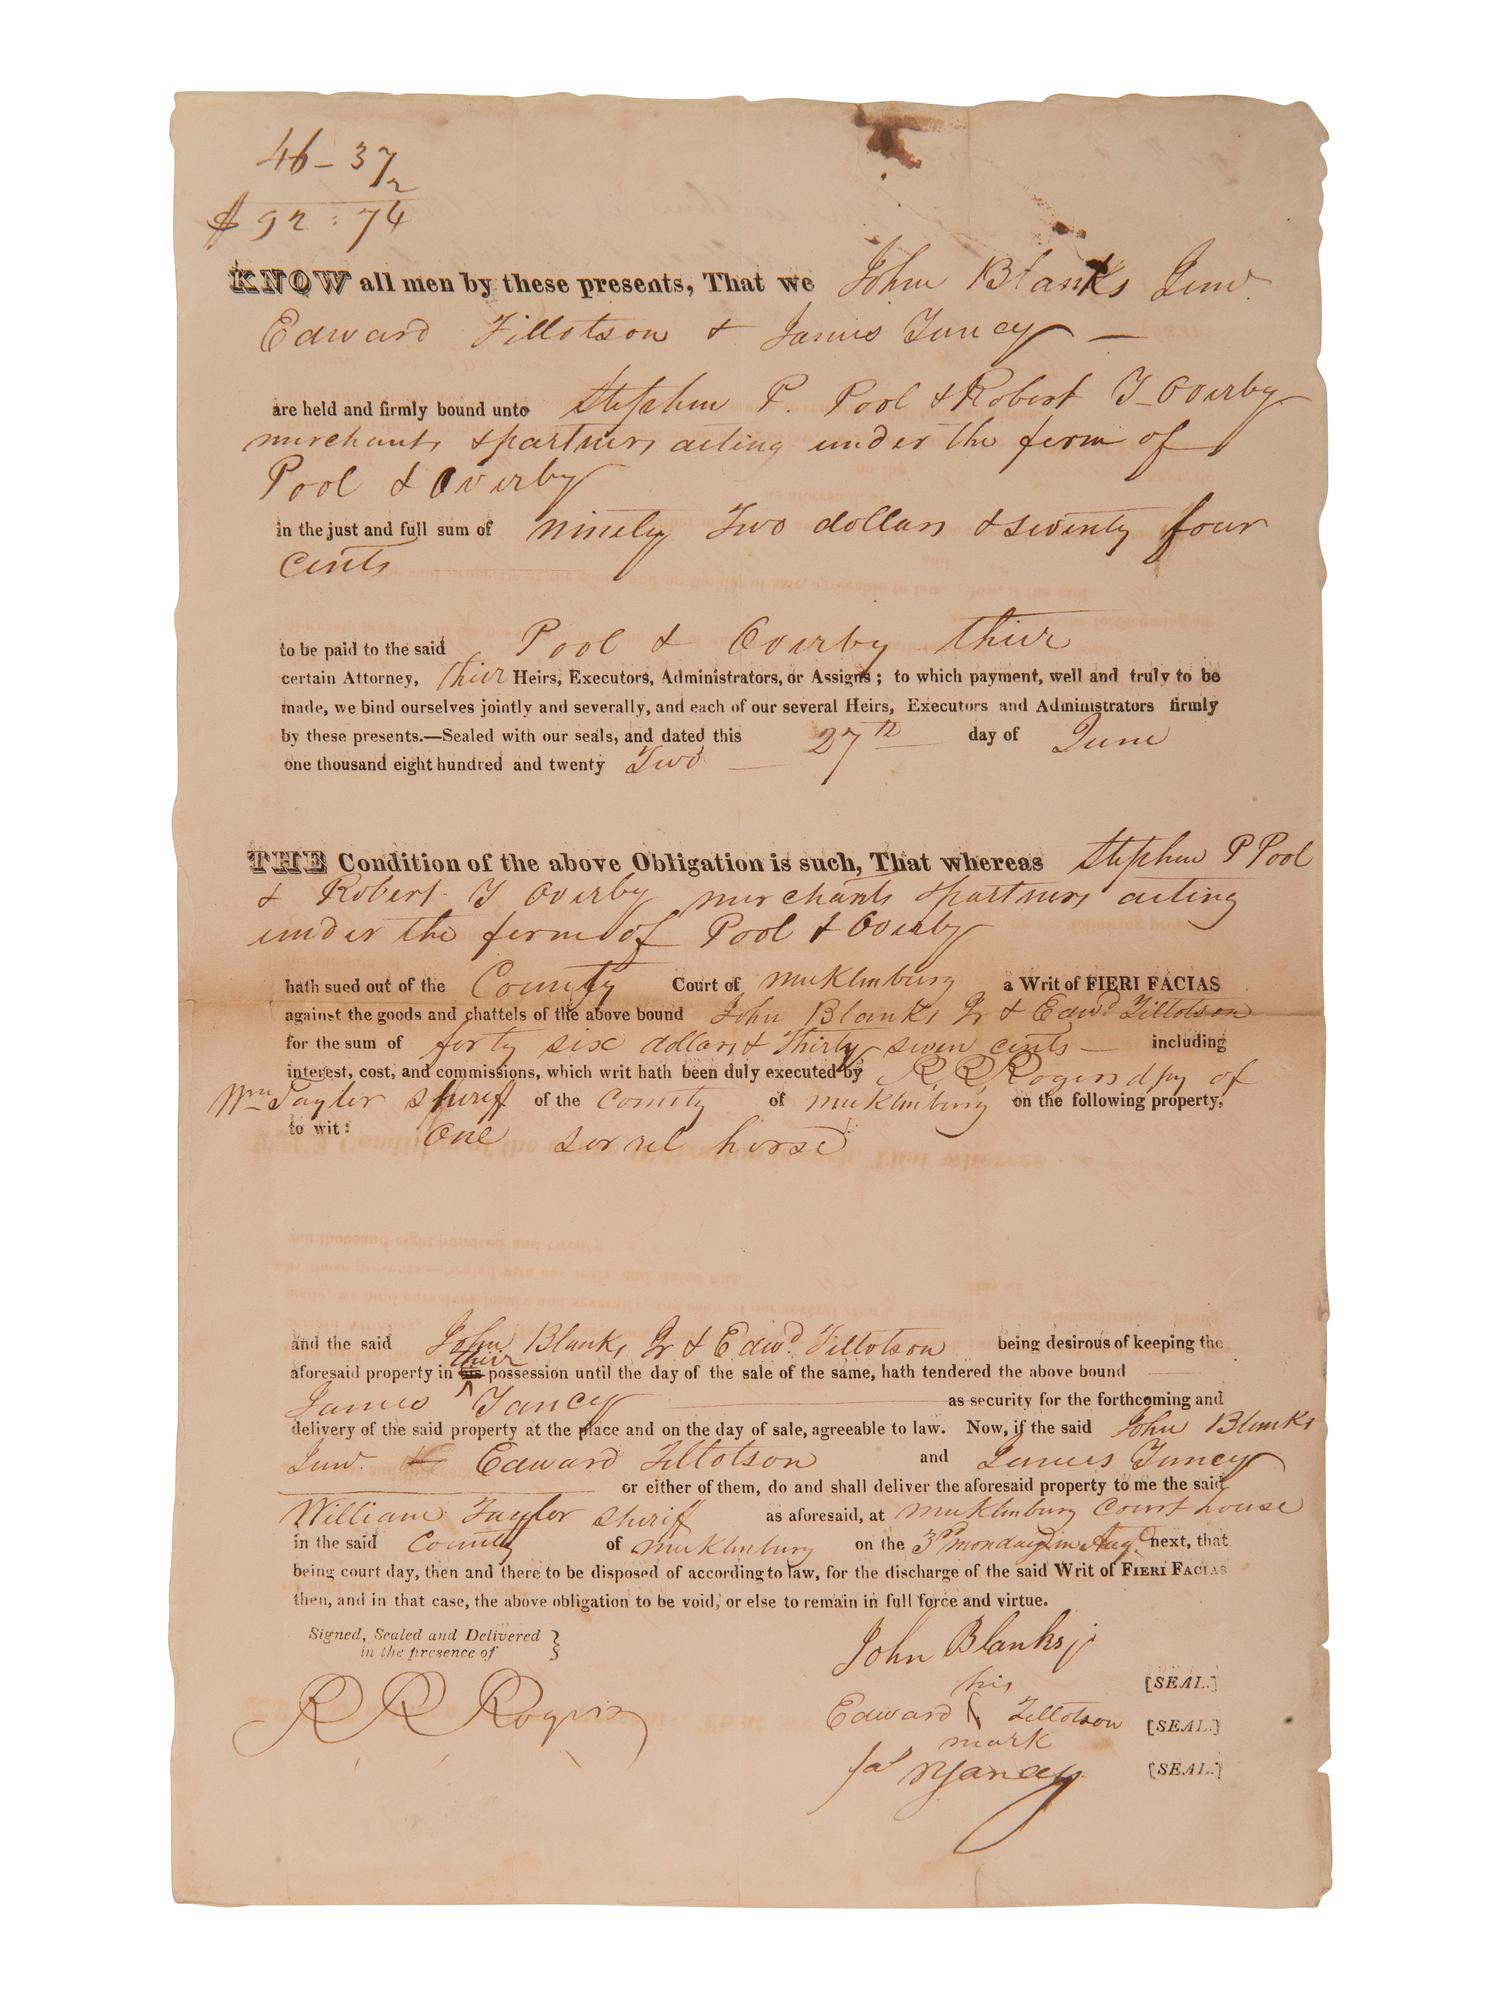 46 - 37
2
$ 92 : 74
KNOW all men by these presents, That we John Blanks Junr.
Edward Tillotson & James Yancy
are held and firmly bound unto Stephen P. Pool & Robert Y. Overby
merchants & partners acting under the ferm of
Pool & Overby
in the just and full sum of ninety Two dollars & seventy four
cents
to be paid to the said Pool & Overby their
certain Attorney, their Heirs, Executors, Administrators, or Assigns; to which payment, well and truly to be
made, we bind ourselves jointly and severally, and each of our several Heirs, Executors and Administrators firmly
by these presents.—Sealed with our seals, and dated this 27th day of June
one thousand eight hundred and twenty Two
THE Condition of the above Obligation is such, That whereas Stephen P Pool
& Robert Y Overby merchants & partners acting
under the ferm of Pool & Overby
hath sued out of the County Court of Mecklenburg a Writ of FIERI FACIAS
against the goods and chattels of the above bound John Blanks Jr & Edwd. Tillotson
for the sum of forty six dollars & Thirty seven cents — including
interest, cost, and commissions, which writ hath been duly executed by R. R. Rogers dpy of
Wm Taylor Sheriff of the County of Mecklenburg on the following property,
to wit: One sorrel horse
and the said John Blanks Jr & Edwd. Tillotson being desirous of keeping the
their
aforesaid property in his possession until the day of the sale of the same, hath tendered the above bound
James Yancy as security for the forthcoming and
delivery of the said property at the place and on the day of sale, agreeable to law. Now, if the said John Blanks
Junr. & Edward Tillotson and James Yancy
or either of them, do and shall deliver the aforesaid property to me the said
William Taylor Sheriff as aforesaid, at Mecklenburg Court house
in the said County of Mecklenburg on the 3rd monday in Augt. next, that
being court day, then and there to be disposed of according to law, for the discharge of the said Writ of FIERI FACIAS
then, and in that case, the above obligation to be void, or else to remain in full force and virtue.
Signed, Sealed and Delivered }
in the presence of
R R Rogers
John Blanks jr
[SEAL.]
his
Edward Tillotson [SEAL.]
mark
Jas Yancey [SEAL.]